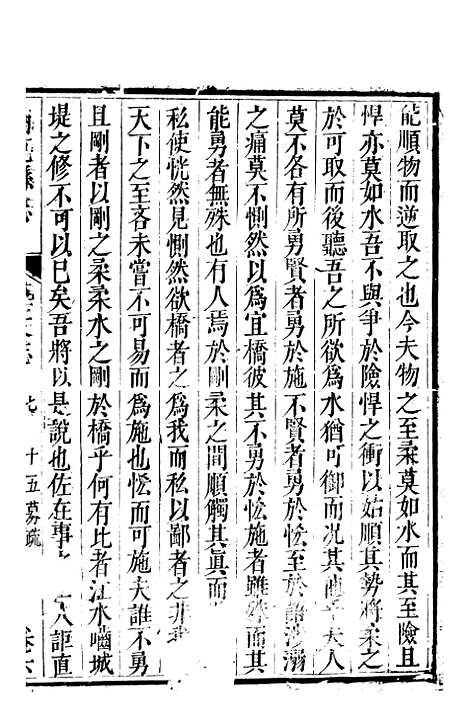 能順物而逆取之也今夫物之至柔莫如水而其至險且
悍亦莫如水吾不與爭於險悍之衝以姑順其勢將柔之
於可取而後聽吾之所欲為水猶可御而況其 夫人
莫不各有所勇賢者勇於施不賢者勇於恡至於 溺
之痛莫不惻然以為宜橋彼其不勇於恡施者雖 而其
能勇者無殊也有人焉於剛柔之間順觸其眞而
私使恍然見惻然欲橋者之為我而私以鄙者之非
天下之至吝未嘗不可易而為施也恡而可施夫誰不勇
且剛者以剛之柔柔水之剛於橋乎何有比者江水嚙城
堤之修不可以已矣吾將以是說也佐在事 人詎直
縣志 藝文志 十五 募疏 卷六